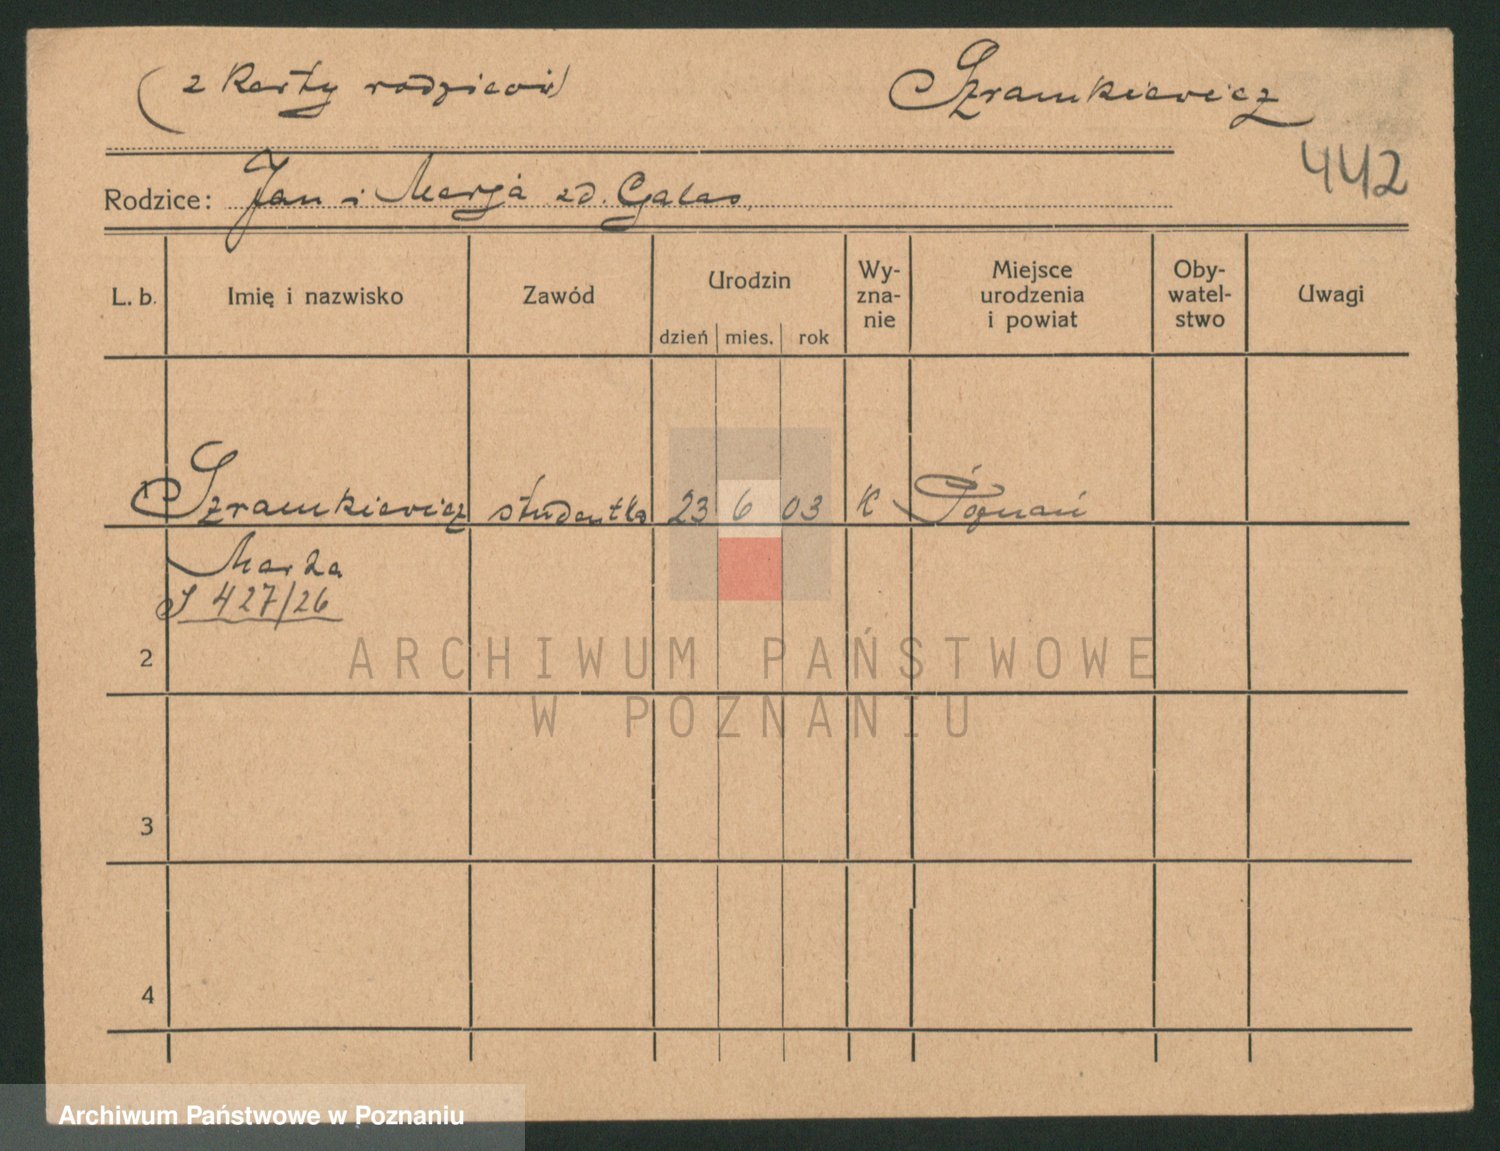 (z karty rodziców) Szramkiewicz
442
Rodzice: Jan i Marja zd. Galas.
L. b. Imię i nazwisko Zawód Urodzin dzień mies. rok Wy-zna-nie Miejsce urodzenia i powiat Oby-watel-stwo Uwagi
1 Szramkiewicz studentka 23 6 03 K Poznań
Marża
S 427/26
2
ARCHIWUM PAŃSTWOWE
W POZNANIU
3
4
Archiwum Państwowe w Poznaniu